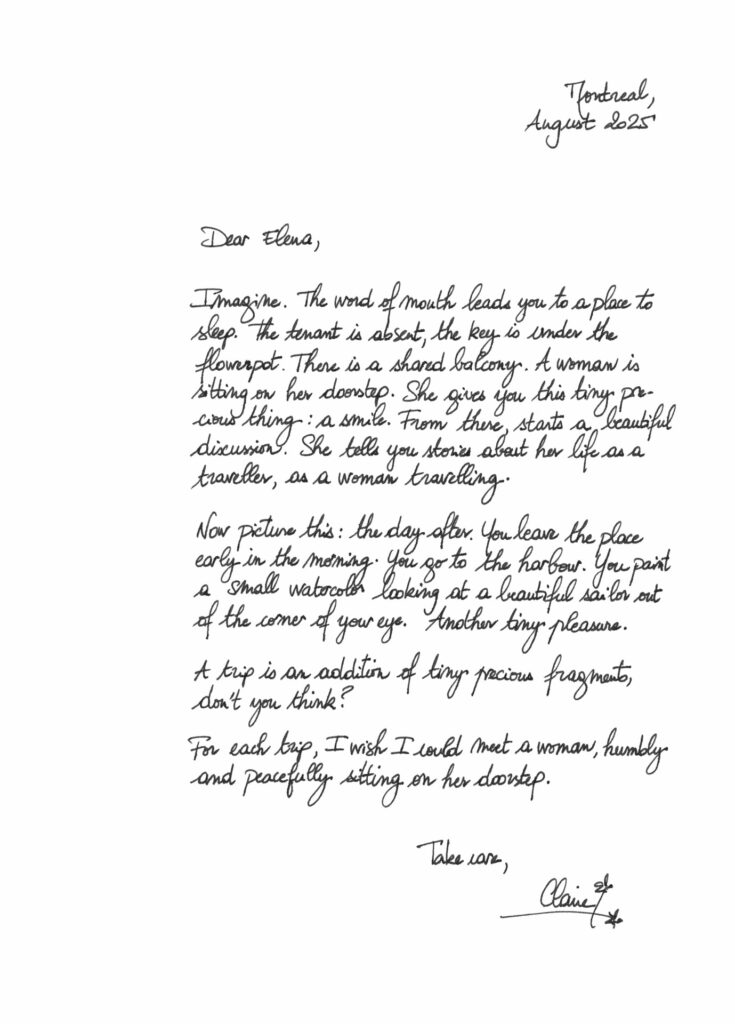 Montreal,
August 2025
Dear Elena,
Imagine. The word of mouth leads you to a place to
sleep. The tenant is absent, the key is under the
flowerpot. There is a shared balcony. A woman is
sitting on her doorstep. She gives you this tiny pre-
cious thing: a smile. From there, starts a beautiful
discussion. She tells you stories about her life as a
traveller, as a woman travelling.
Now picture this: the day after. You leave the place
early in the morning. You go to the harbour. You paint
a small watercolor looking at a beautiful sailor out
of the corner of your eye. Another tiny pleasure.
A trip is an addition of tiny precious fragments,
don't you think?
For each trip, I wish I could meet a woman, humbly
and peacefully sitting on her doorstep.
Take care,
Claire